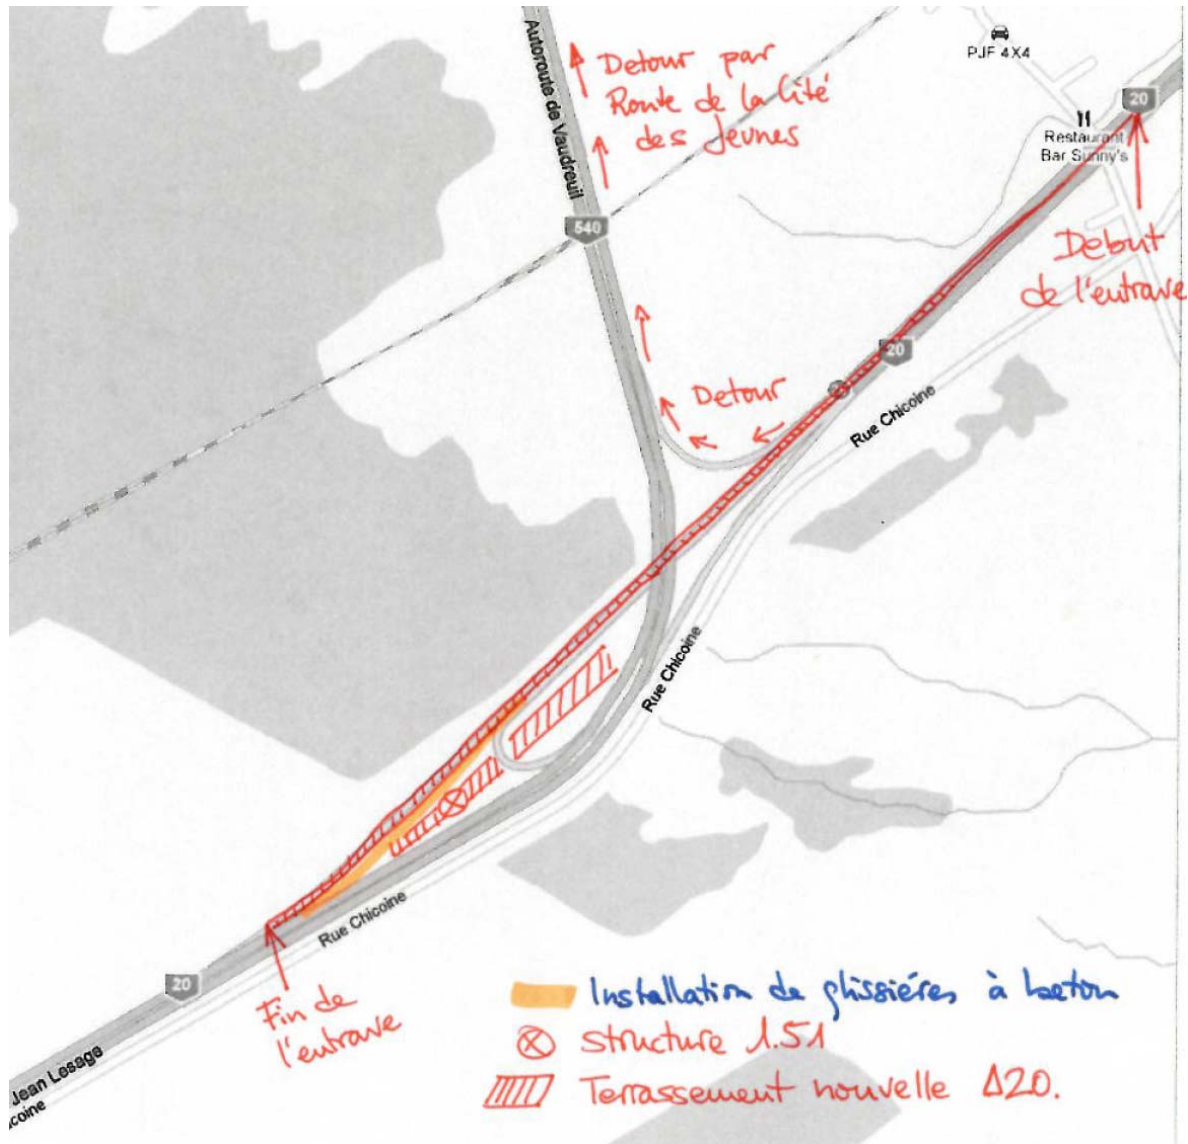 Autoroute de Vaudreuil
Detour par
Route de la Cité
des Jeunes
PJF 4X4
20
Restaurant
Bar Sunny's
540
Debut
de l'entrave
20
Detour
Rue Chicoine
Rue Chicoine
Rue Chicoine
20
Fin de
l'entrave
Jean Lesage
coine
Installation de glissières à beton
structure 1.51
Terrassement nouvelle A20.